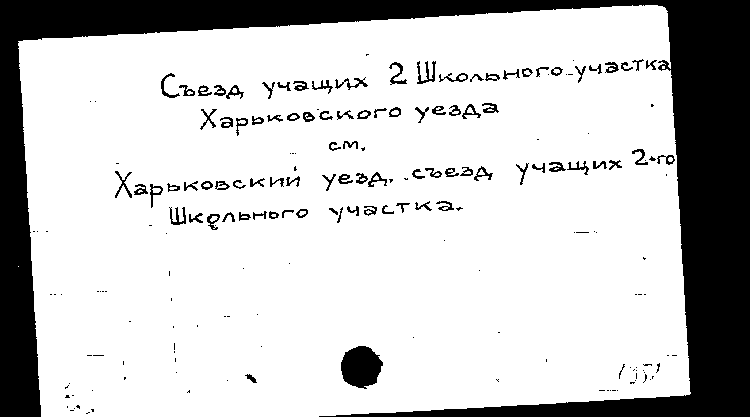 Съезд учащих 2 Школьного участка
Харьковского уезда
см.
Харьковский уезд. съезд учащих 2-го
Школьного участка.